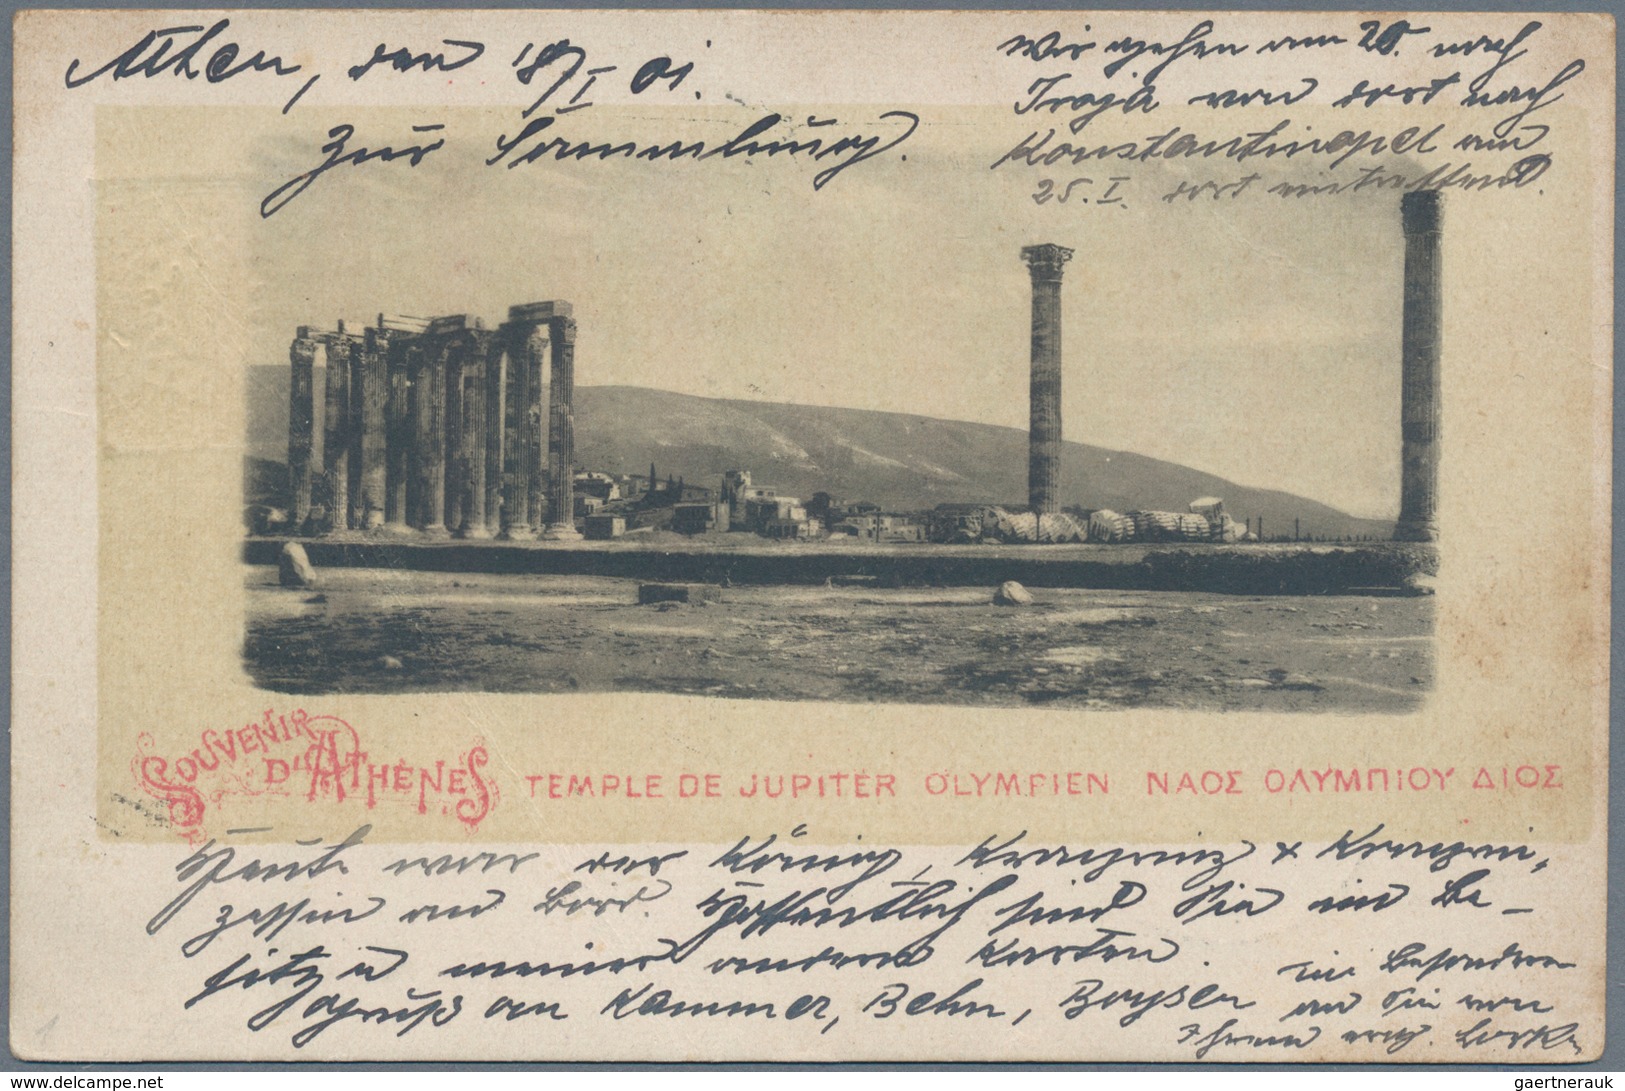 Athen, den 18/I 01.
Zur Sammlung.
Wir gehen am 20. nach
Troja von dort nach
Konstantinopel am
25. I. dort eintreffend.
SOUVENIR
D'ATHÈNES TEMPLE DE JUPITER OLYMPIEN ΝΑΟΣ ΟΛΥΜΠΙΟΥ ΔΙΟΣ
Heute war der König, Kronprinz & Kronprin-
zessin an Bord. Hoffentlich sind Sie im Be-
sitze meiner anderen Karten.
Gruß an Kammer, Behn, Boysen
im Besonderen
an Sie von
Ihrem
1
gaertnerauk